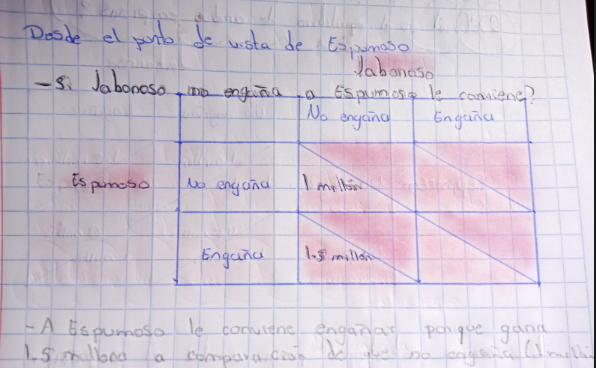 Desde el punto de vista de Espumoso
Jabonoso
- Si Jabonoso no engaña a Espumoso le conviene?
No engaña Engaña
Espumoso No engaña 1 millón
Engaña 1.5 millon
- A Espumoso le conviene engañar porque gana
1.5 a comparación de que no engaña (1